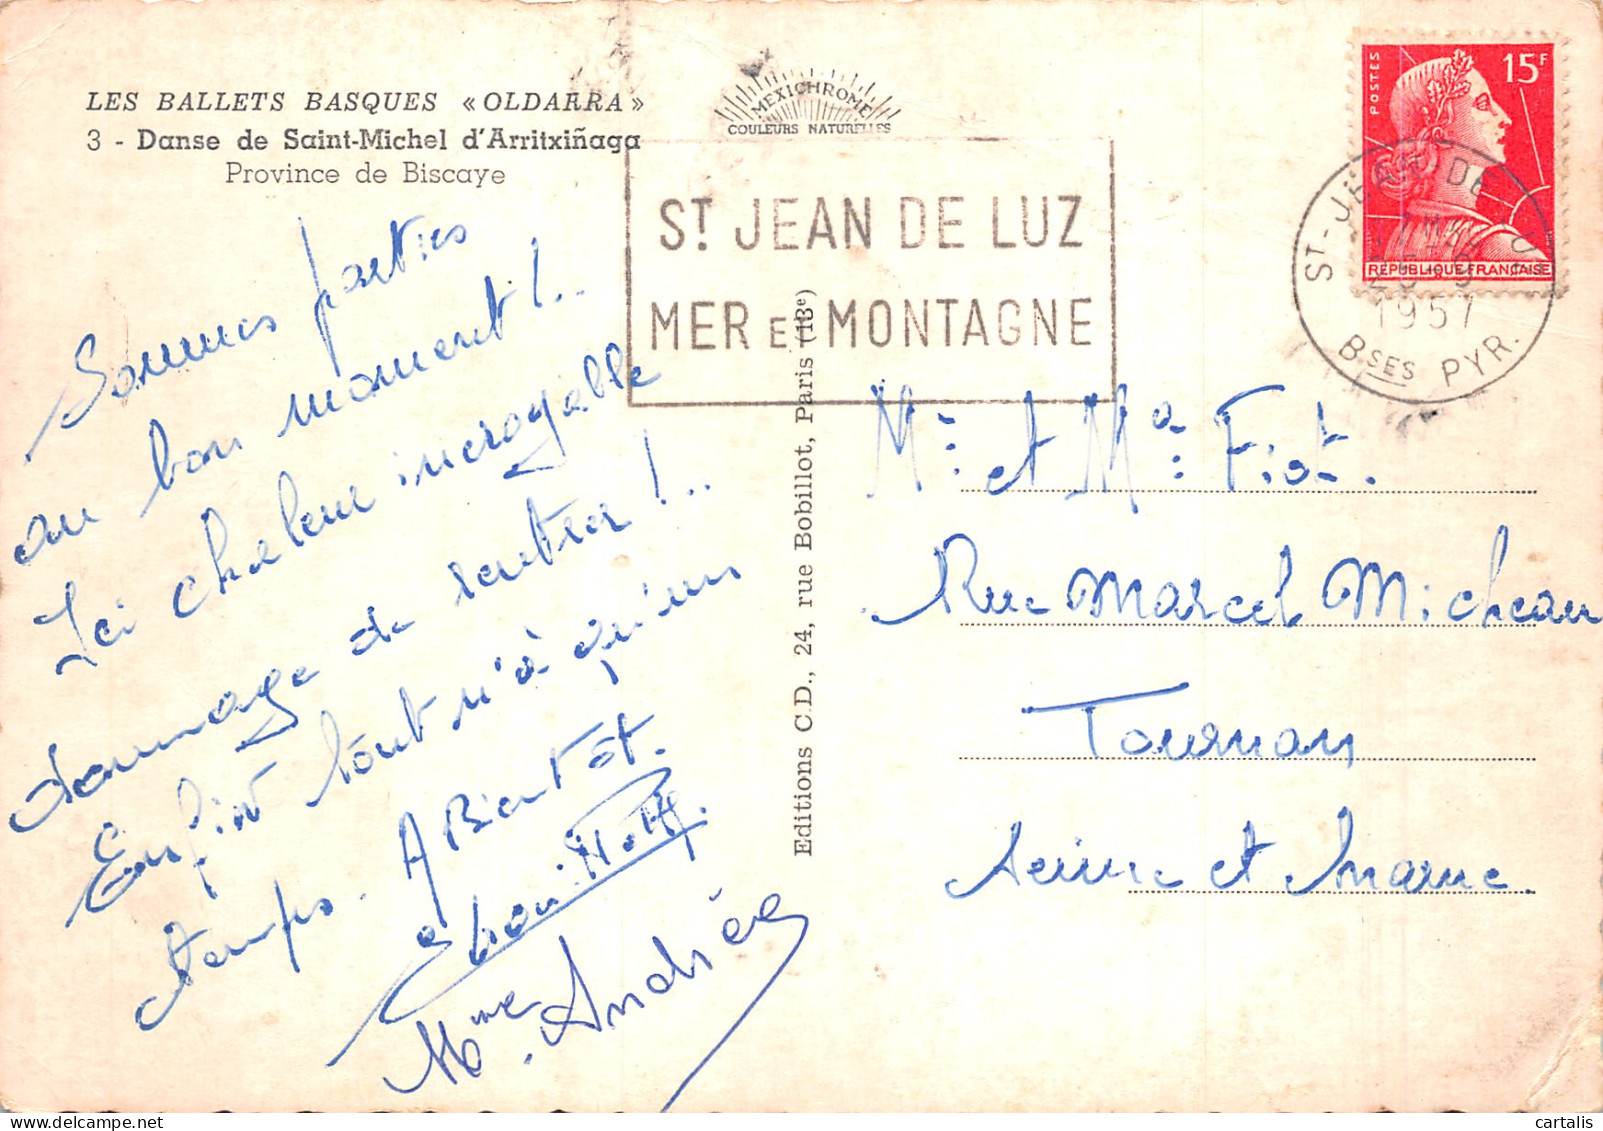 LES BALLETS BASQUES « OLDARRA »
3 - Danse de Saint-Michel d'Arritxiñaga
Province de Biscaye
MEXICHROME
COULEURS NATURELLES
ST JEAN DE LUZ
MER ET MONTAGNE
POSTES
15F
REPUBLIQUE FRANÇAISE
ST-JEAN-DE-LUZ
1957
BSES PYR.
Sommes parties
au bon moment !..
Ici chaleur incroyable
dommage de rentrer !..
Enfin tout n'à qu'un
temps. A Bientôt.
Mme Andrée
Editions C.D., 24, rue Bobillot, Paris (13e)
Mr: et Ma: Fiot.
Rue Marcel Micheau
Tournan
Seine et Marne.
cartalis